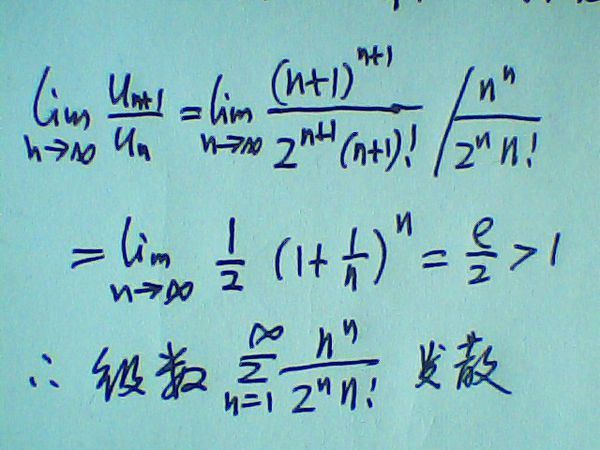 lim_{n→∞} u_{n+1}/u_n = lim_{n→∞} (n+1)^{n+1}/(2^{n+1}(n+1)!) / n^n/(2^n n!)
= lim_{n→∞} 1/2 (1+1/n)^n = e/2 > 1
∴ 级数 ∑_{n=1}^{∞} n^n/(2^n n!) 发散